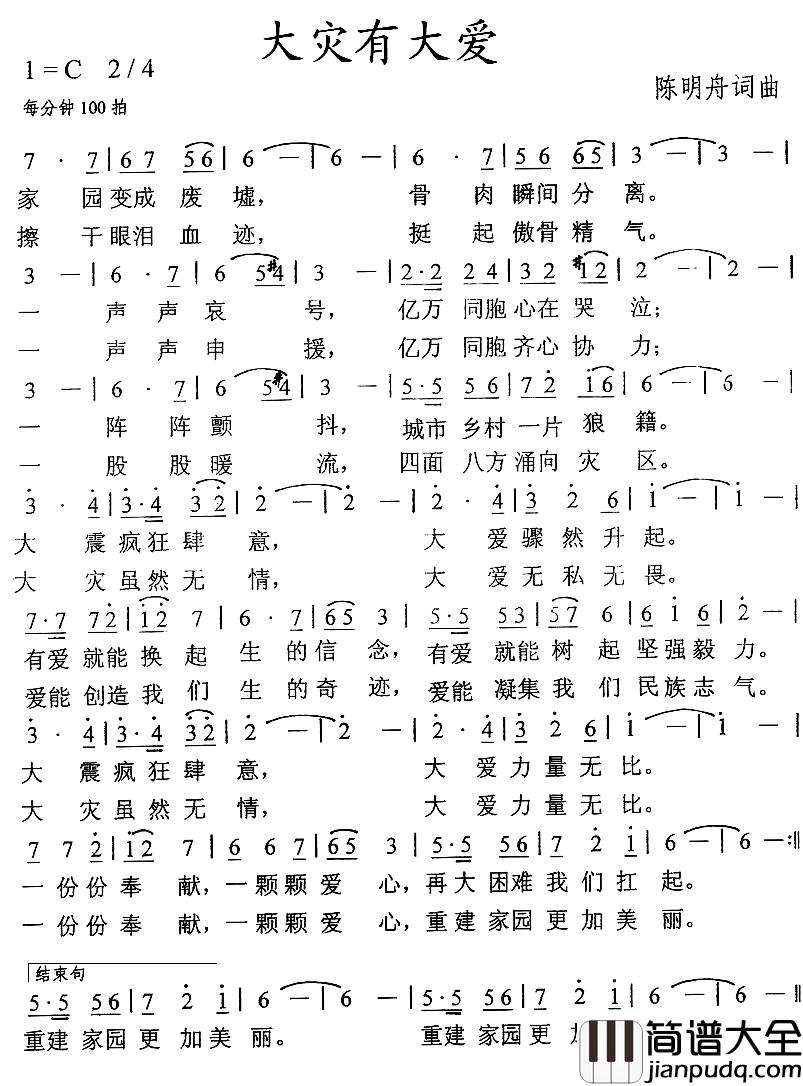 大灾有大爱
1=C 2/4
陈明舟词曲
每分钟100拍
7 · 7 | 6 7 5 6 | 6 — | 6 — | 6 · 7 | 5 6 6 5 | 3 — | 3 — |
家园变成废墟，骨肉瞬间分离。
擦干眼泪血迹，挺起傲骨精气。
3 — | 6 · 7 | 6 5 #4 | 3 — | 2 · 2 2 4 | 3 2 #1 2 | 2 — | 2 — |
一声声哀号，亿万同胞心在哭泣；
一声声申援，亿万同胞齐心协力；
3 — | 6 · 7 | 6 5 #4 | 3 — | 5 · 5 5 6 | 7 2 1 6 | 6 — | 6 — |
一阵阵颤抖，城市乡村一片狼籍。
一股股暖流，四面八方涌向灾区。
3 · 4 | 3 · 4 3 2 | 2 — | 2 — | 2 · 4 | 3 2 6 | 1 — | 1 — |
大震疯狂肆意，大爱骤然升起。
大灾虽然无情，大爱无私无畏。
7 · 7 7 2 | 1 2 7 | 6 · 7 | 6 5 3 | 5 · 5 5 3 | 5 7 6 | 6 1 6 | 2 — |
有爱就能换起生的信念，有爱就能树起坚强毅力。
爱能创造我们生的奇迹，爱能凝集我们民族志气。
3 · 4 | 3 · 4 3 2 | 2 — | 2 — | 2 · 4 | 3 2 6 | 1 — | 1 — |
大震疯狂肆意，大爱力量无比。
大灾虽然无情，大爱力量无比。
7 7 2 | 1 2 7 | 6 6 7 | 6 5 3 | 5 · 5 5 6 | 7 2 1 | 6 — | 6 — :||
一份份奉献，一颗颗爱心，再大困难我们扛起。
一份份奉献，一颗颗爱心，重建家园更加美丽。
结束句
5 · 5 5 6 | 7 2 1 | 6 — | 6 — | 5 · 5 5 6 | 7 2 1 | 6 — | 6 — ||
重建家园更加美丽。重建家园更
简谱大全
jianpudq.com